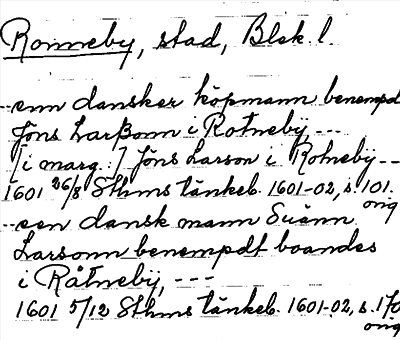 Ronneby, stad, Blek l.
--enn dansker köpmann benempd
Jöns Larßonn i Rotnebÿ ---
[i marg.:] Jöns Larson i Rotneby--
1601 26/8 Sthms tänkeb. 1601-02, s. 101.
orig
--een dansk mann Suänn
Larsonn benempdt boandes
i Råtnebÿ, ---
1601 5/12 Sthms tänkeb. 1601-02, s. 170
orig